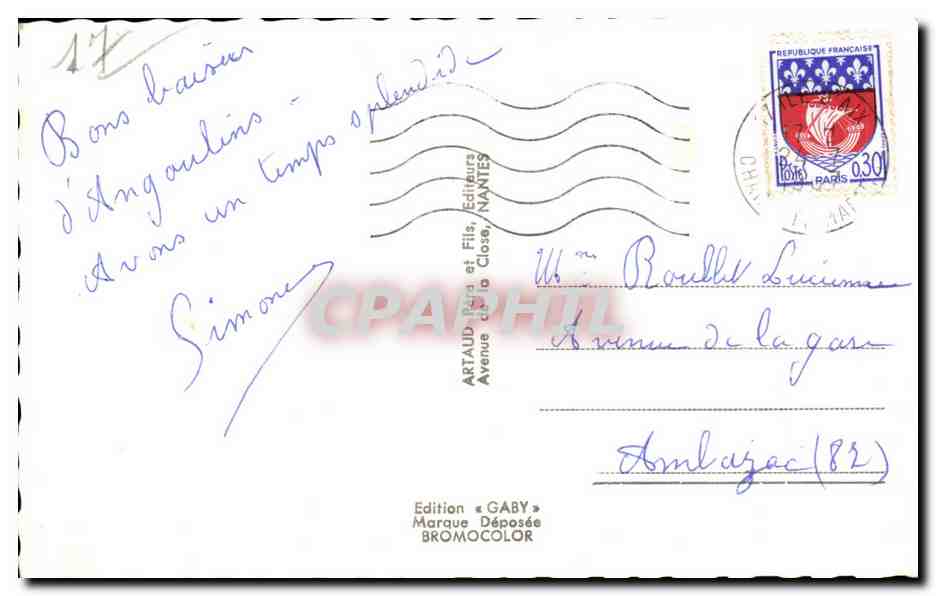 17
Bons baisers
d'Angoulins -
Avons un temps splendide
Simone
REPUBLIQUE FRANÇAISE
POSTES
PARIS
0,30
ARTAUD Père et Fils, Editeurs
Avenue de la Close, NANTES
CPAPHIL
Mme Roullet Lucienne
Avenue de la gare
Ambazac (82)
Edition « GABY »
Marque Déposée
BROMOCOLOR